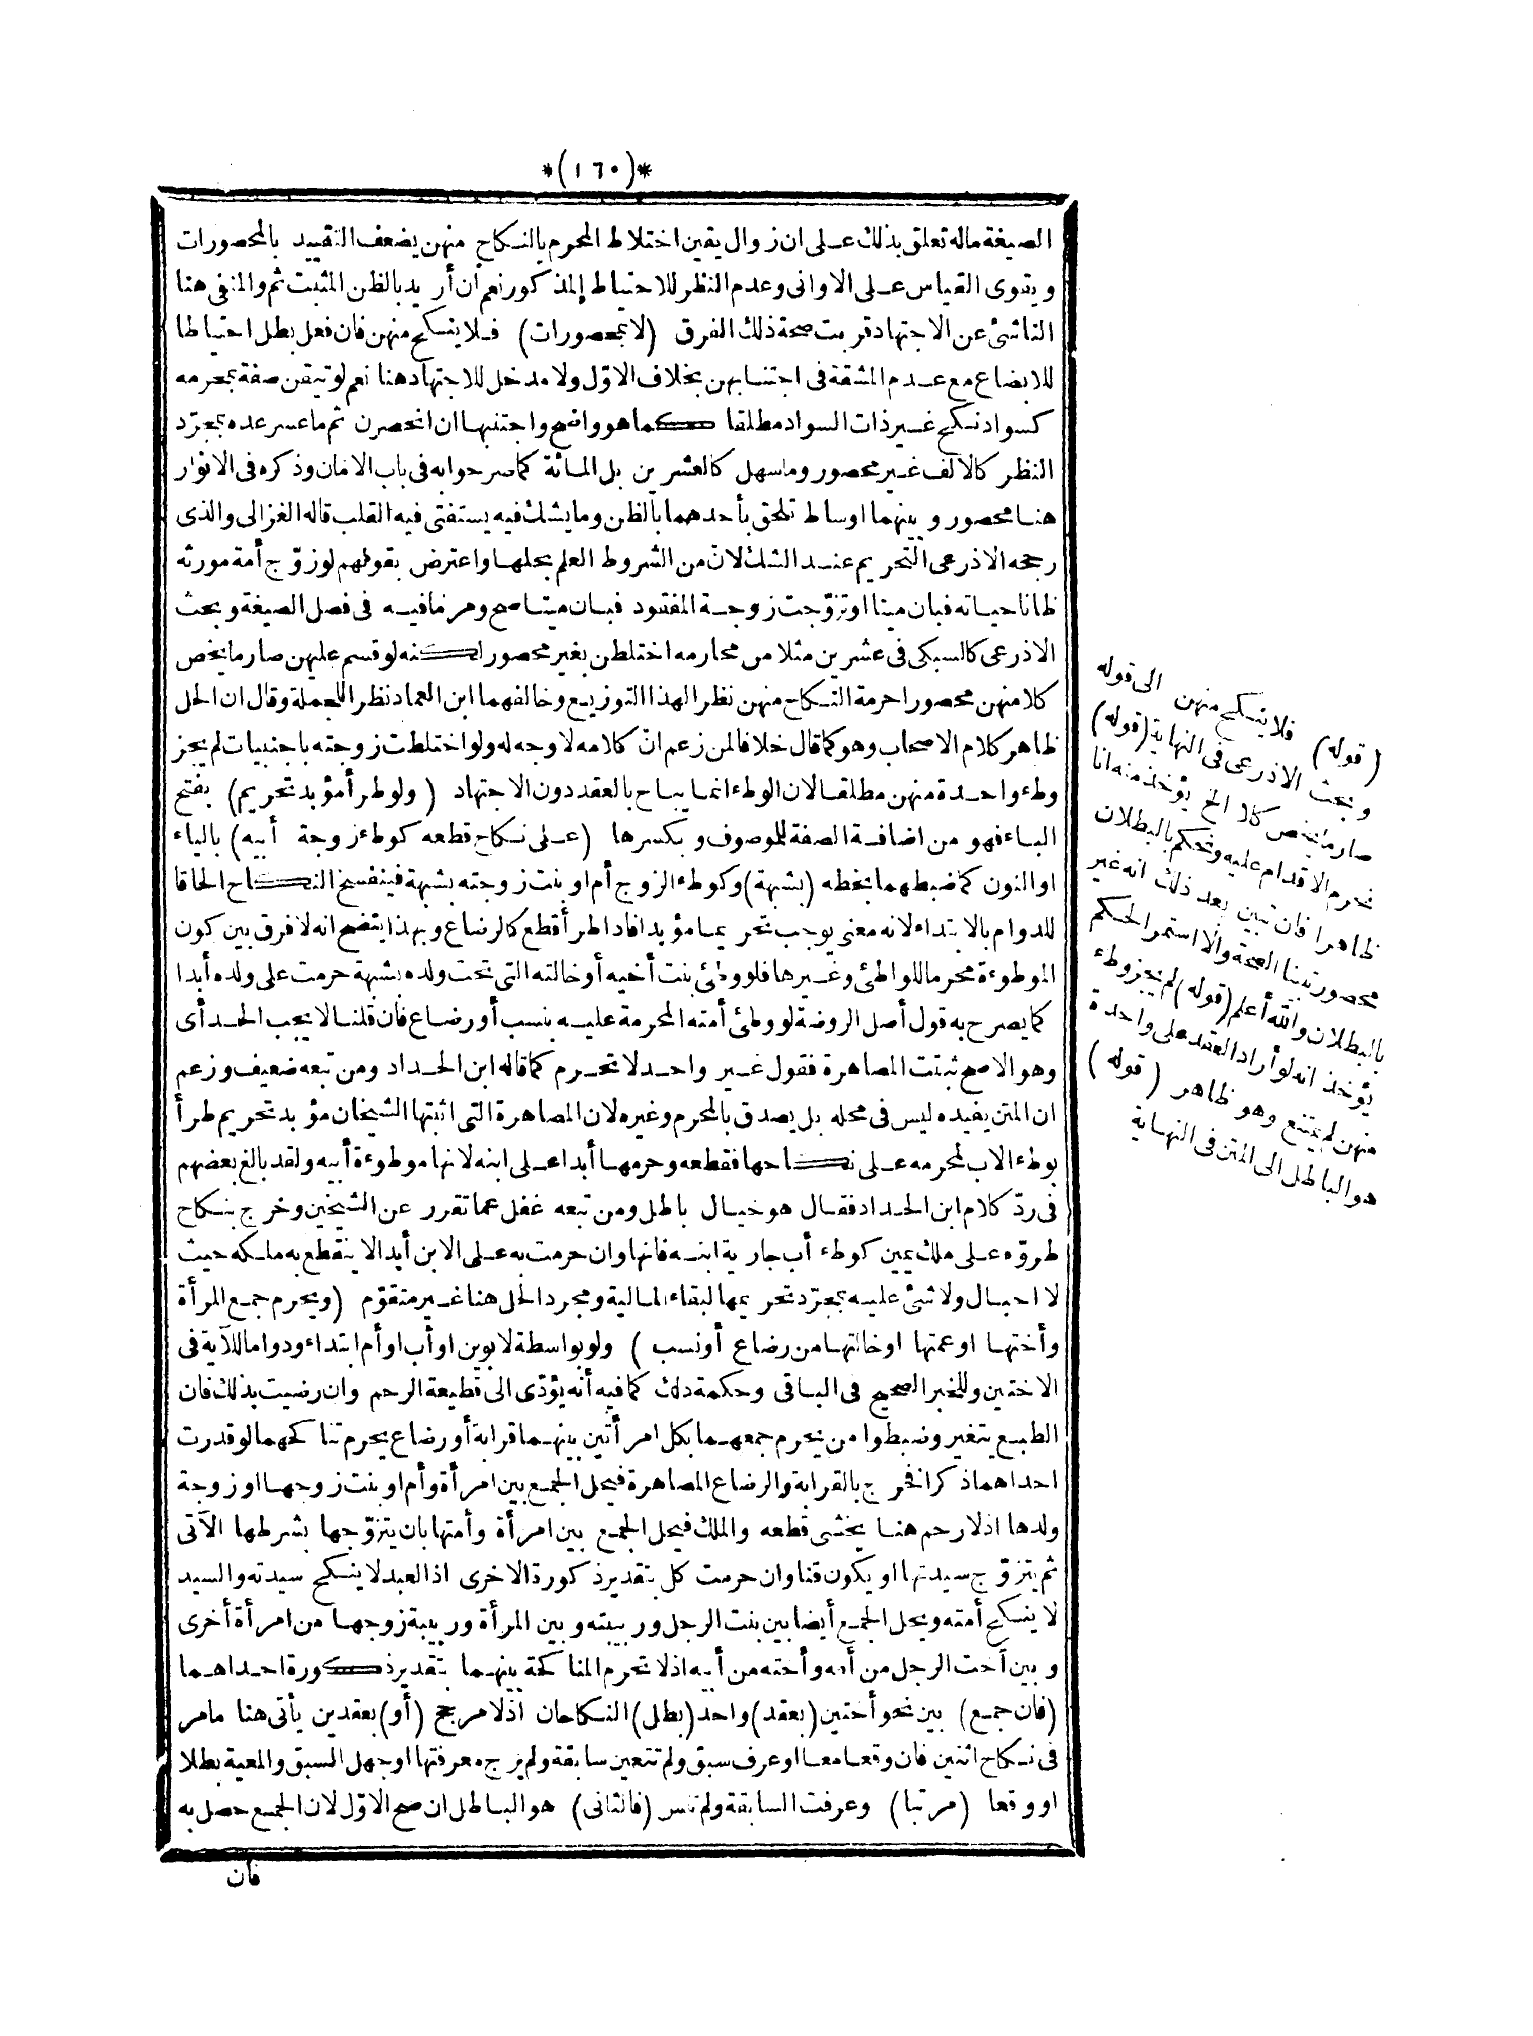 *(١٦٠)*
الصيغة ماله تعلق بذلك على ان زوال يقين اختلاط المحرم بالنكاح منهن يضعف التقييد بالمحصورات
ويقوى القياس على الاوانى وعدم النظر للاحتياط المذكور نعم ان أريد بالظن المثبت ثم والمنفى هنا
الناشئ عن الاجتهاد قربت صحة ذلك الفرق (لا بمحصورات) فلا ينكح منهن فان فعل بطل احتياطا
للابضاع مع عدم المشقة فى اجتنابهن بخلاف الاوّل ولا مدخل للاجتهاد هنا نعم لو تيقن صفة بمحرمه
كسواد نكح غير ذات السواد مطلقا كما هو واضح واجتنبها ان انحصرن ثم ما عسر عده بمجرّد
النظر كالالف غير محصور وما سهل كالعشرين بل المائة كما صرحوا به فى باب الامان وذكره فى الانوار
هنا محصور وبينهما اوساط تلحق بأحدهما بالظن وما يشك فيه يستفتى فيه القلب قاله الغزالى والذى
رجحه الاذرعى التحريم عند الشك لانّ من الشروط العلم بحلها واعترض بقولهم لو زوّج أمة مورثه
ظانا حياته فبان ميتا او تزوّجت زوجة المفقود فبان ميتا صح ومر مافيه فى فصل الصيغة وبحث
الاذرعى كالسبكى فى عشرين مثلا من محارمه اختلطن بغير محصور لكنه لو قسم عليهن صار ما يخص
كلا منهن محصورا حرمة النكاح منهن نظرا لهذا التوزيع وخالفهما ابن العماد نظرا للجملة وقال ان الحل
ظاهر كلام الاصحاب وهو كما قال خلافا لمن زعم انّ كلامه لا وجه له ولو اختلطت زوجته باجنبيات لم يجز
وطء واحدة منهن مطلقا لان الوطء انما يباح بالعقد دون الاجتهاد (ولو طرأ مؤبد تحريم) بفتح
الباء فهو من اضافة الصفة للموصوف وبكسرها (على نكاح قطعه كوطء زوجة أبيه) بالياء
او النون كما ضبطهما بخطه (بشبهة) وكوطء الزوج أم او بنت زوجته بشبهة فينفسخ النكاح الحاقا
للدوام بالابتداء لانه معنى يوجب تحريما مؤبدا فاذا طرأ قطع كالرضاع وبهذا يتضح انه لا فرق بين كون
الموطوءة محرما للواطئ وغيرها فلو وطئ بنت أخيه أو خالته التى تحت ولده بشبهة حرمت على ولده أبدا
كما يصرح به قول أصل الروضة لو وطئ أمته المحرمة عليه بنسب أو رضاع فان قلنا لا يجب الحد أى
وهو الاصح ثبتت المصاهرة فقول غير واحد لا تحرم كما قاله ابن الحداد ومن تبعه ضعيف وزعم
ان المتن يفيده ليس فى محله بل يصدق بالمحرم وغيره لان المصاهرة التى اثبتها الشيخان مؤبد تحريم طرأ
بوطء الاب لمحرمه على نكاحها فقطعه وحرمها أبدا على ابنه لانها موطوءة أبيه ولقد بالغ بعضهم
فى ردّ كلام ابن الحداد فقال هو خيال باطل ومن تبعه غفل عما تقرر عن الشيخين وخرج بنكاح
طروّه على ملك يمين كوطء أب جارية ابنه فانها وان حرمت به على الابن أبدا لا ينقطع به ملكه حيث
لا احبال ولا شئ عليه بمجرّد تحريمها لبقاء المالية ومجرد الحل هنا غير متقوّم (ويحرم جمع المرأة
وأختها او عمتها او خالتها من رضاع أو نسب) ولو بواسطة لابوين او أب او أم ابتداء ودواما للآية فى
الاختين وللخبر الصحيح فى الباقى وحكمة ذلك كما فيه أنه يؤدّى الى قطيعة الرحم وان رضيت بذلك فان
الطبع يتغير وضبطوا من يحرم جمعهما بكل امرأتين بينهما قرابة أو رضاع يحرم تناكحهما لو قدرت
احداهما ذكرا فخرج بالقرابة والرضاع المصاهرة فيحل الجمع بين امرأة وأم او بنت زوجها او زوجة
ولدها اذ لا رحم هنا يخشى قطعه والملك فيحل الجمع بين امرأة وأمتها بان يتزوّجها بشرطها الآتى
ثم يتزوّج سيدتها او يكون قنا وان حرمت كل بتقدير ذكورة الاخرى اذ العبد لا ينكح سيدته والسيد
لا ينكح أمته ويحل الجمع أيضا بين بنت الرجل وربيبته وبين المرأة وربيبة زوجها من امرأة أخرى
وبين أخت الرجل من أمه وأخته من أبيه اذ لا تحرم المناكحة بينهما بتقدير ذكورة احداهما
(فان جمع) بين نحو أختين (بعقد) واحد (بطل) النكاحان اذ لا مرجح (أو) بعقدين يأتى هنا مامر
فى نكاح اثنين فان وقعا معا او عرف سبق ولم تتعين سابقة ولم يرج معرفتها او جهل السبق والمعية بطلا
او وقعا (مرتبا) وعرفت السابقة ولم تنس (فالثانى) هو الباطل ان صح الاوّل لان الجمع حصل به
فان
(قوله) فلا ينكح منهن الى قوله
وبحث الاذرعى فى النهاية (قوله)
صار ما يخص كلا الخ يؤخذ منه انا
نحرم الاقدام عليه ونحكم بالبطلان
ظاهرا فان تبين بعد ذلك انه غير
محصور تبينا الصحة والا استمر الحكم
بالبطلان والله أعلم (قوله) لم يجز وطء
يؤخذ انه لو أراد العقد على واحدة
منهن لم يمتنع وهو ظاهر (قوله)
هو الباطل الى المتن فى النهاية